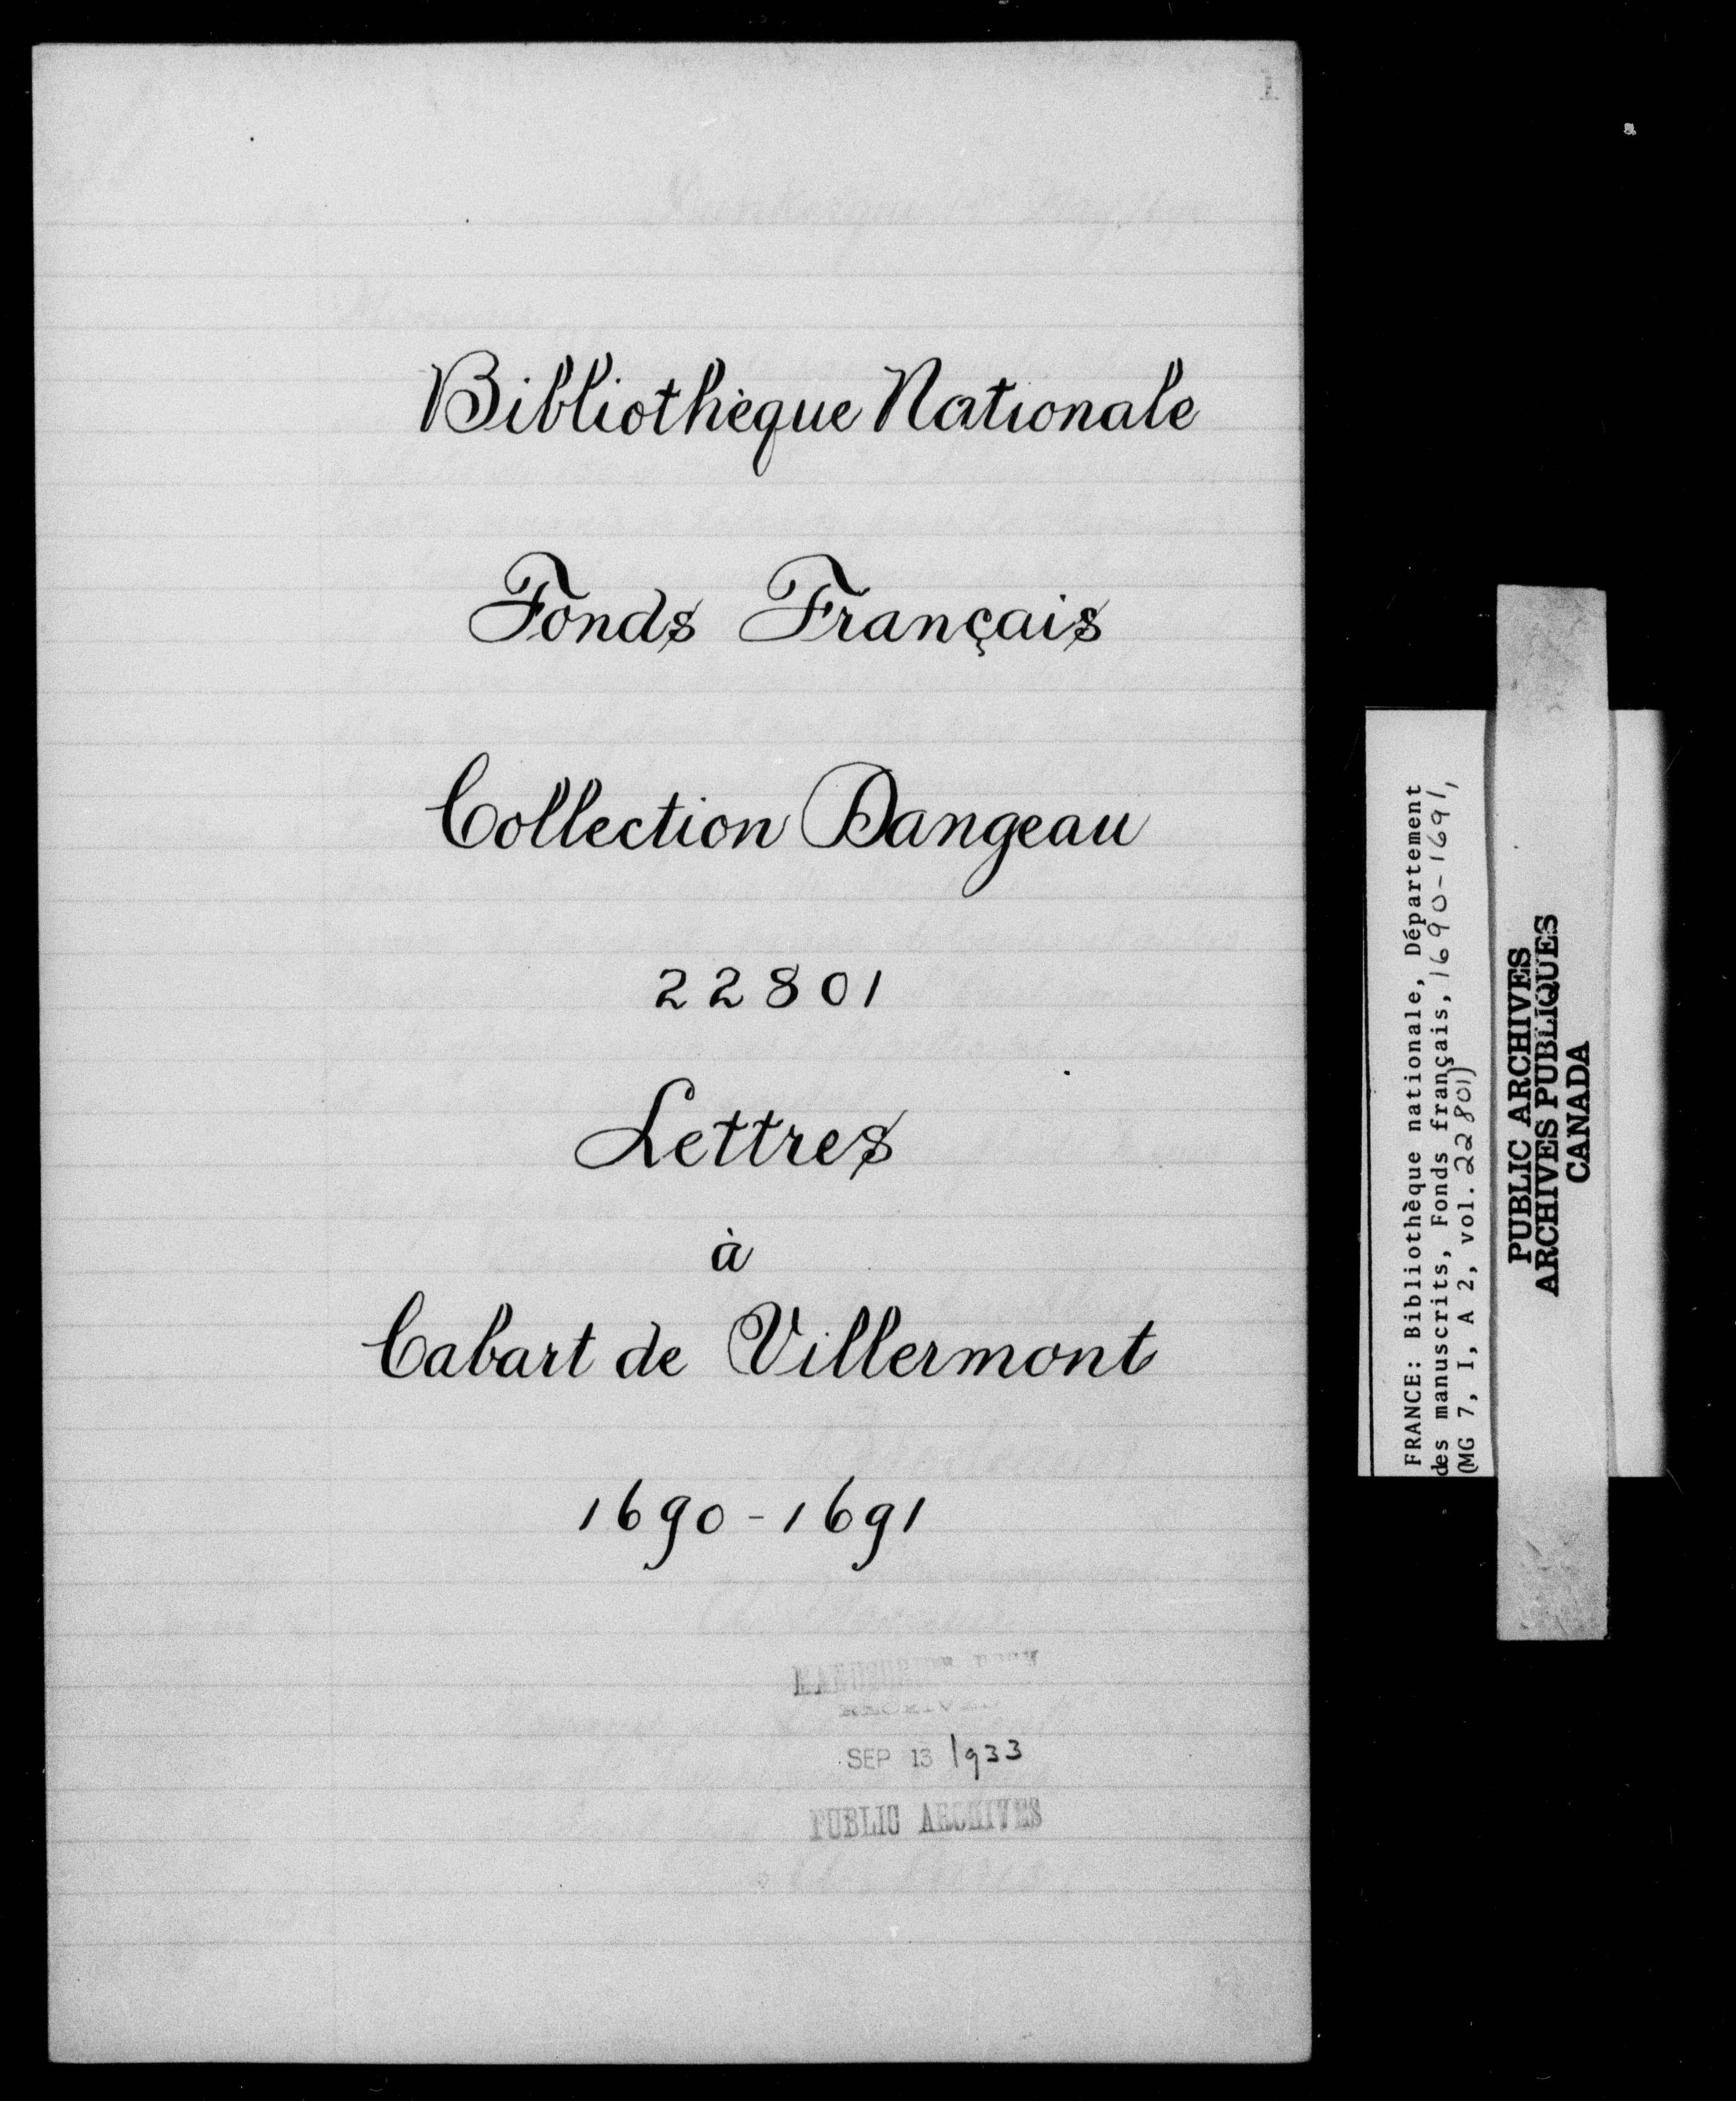 1
Bibliothèque Nationale
Fonds Français
Collection Dangeau
22801
Lettres
à
Cabart de Villermont
1690-1691
SEP 13 1933
PUBLIC ARCHIVES
FRANCE: Bibliothèque nationale, Département
des manuscrits, Fonds français, 1690-1691,
(MG 7, I, A 2, vol. 22801)
PUBLIC ARCHIVES
ARCHIVES PUBLIQUES
CANADA